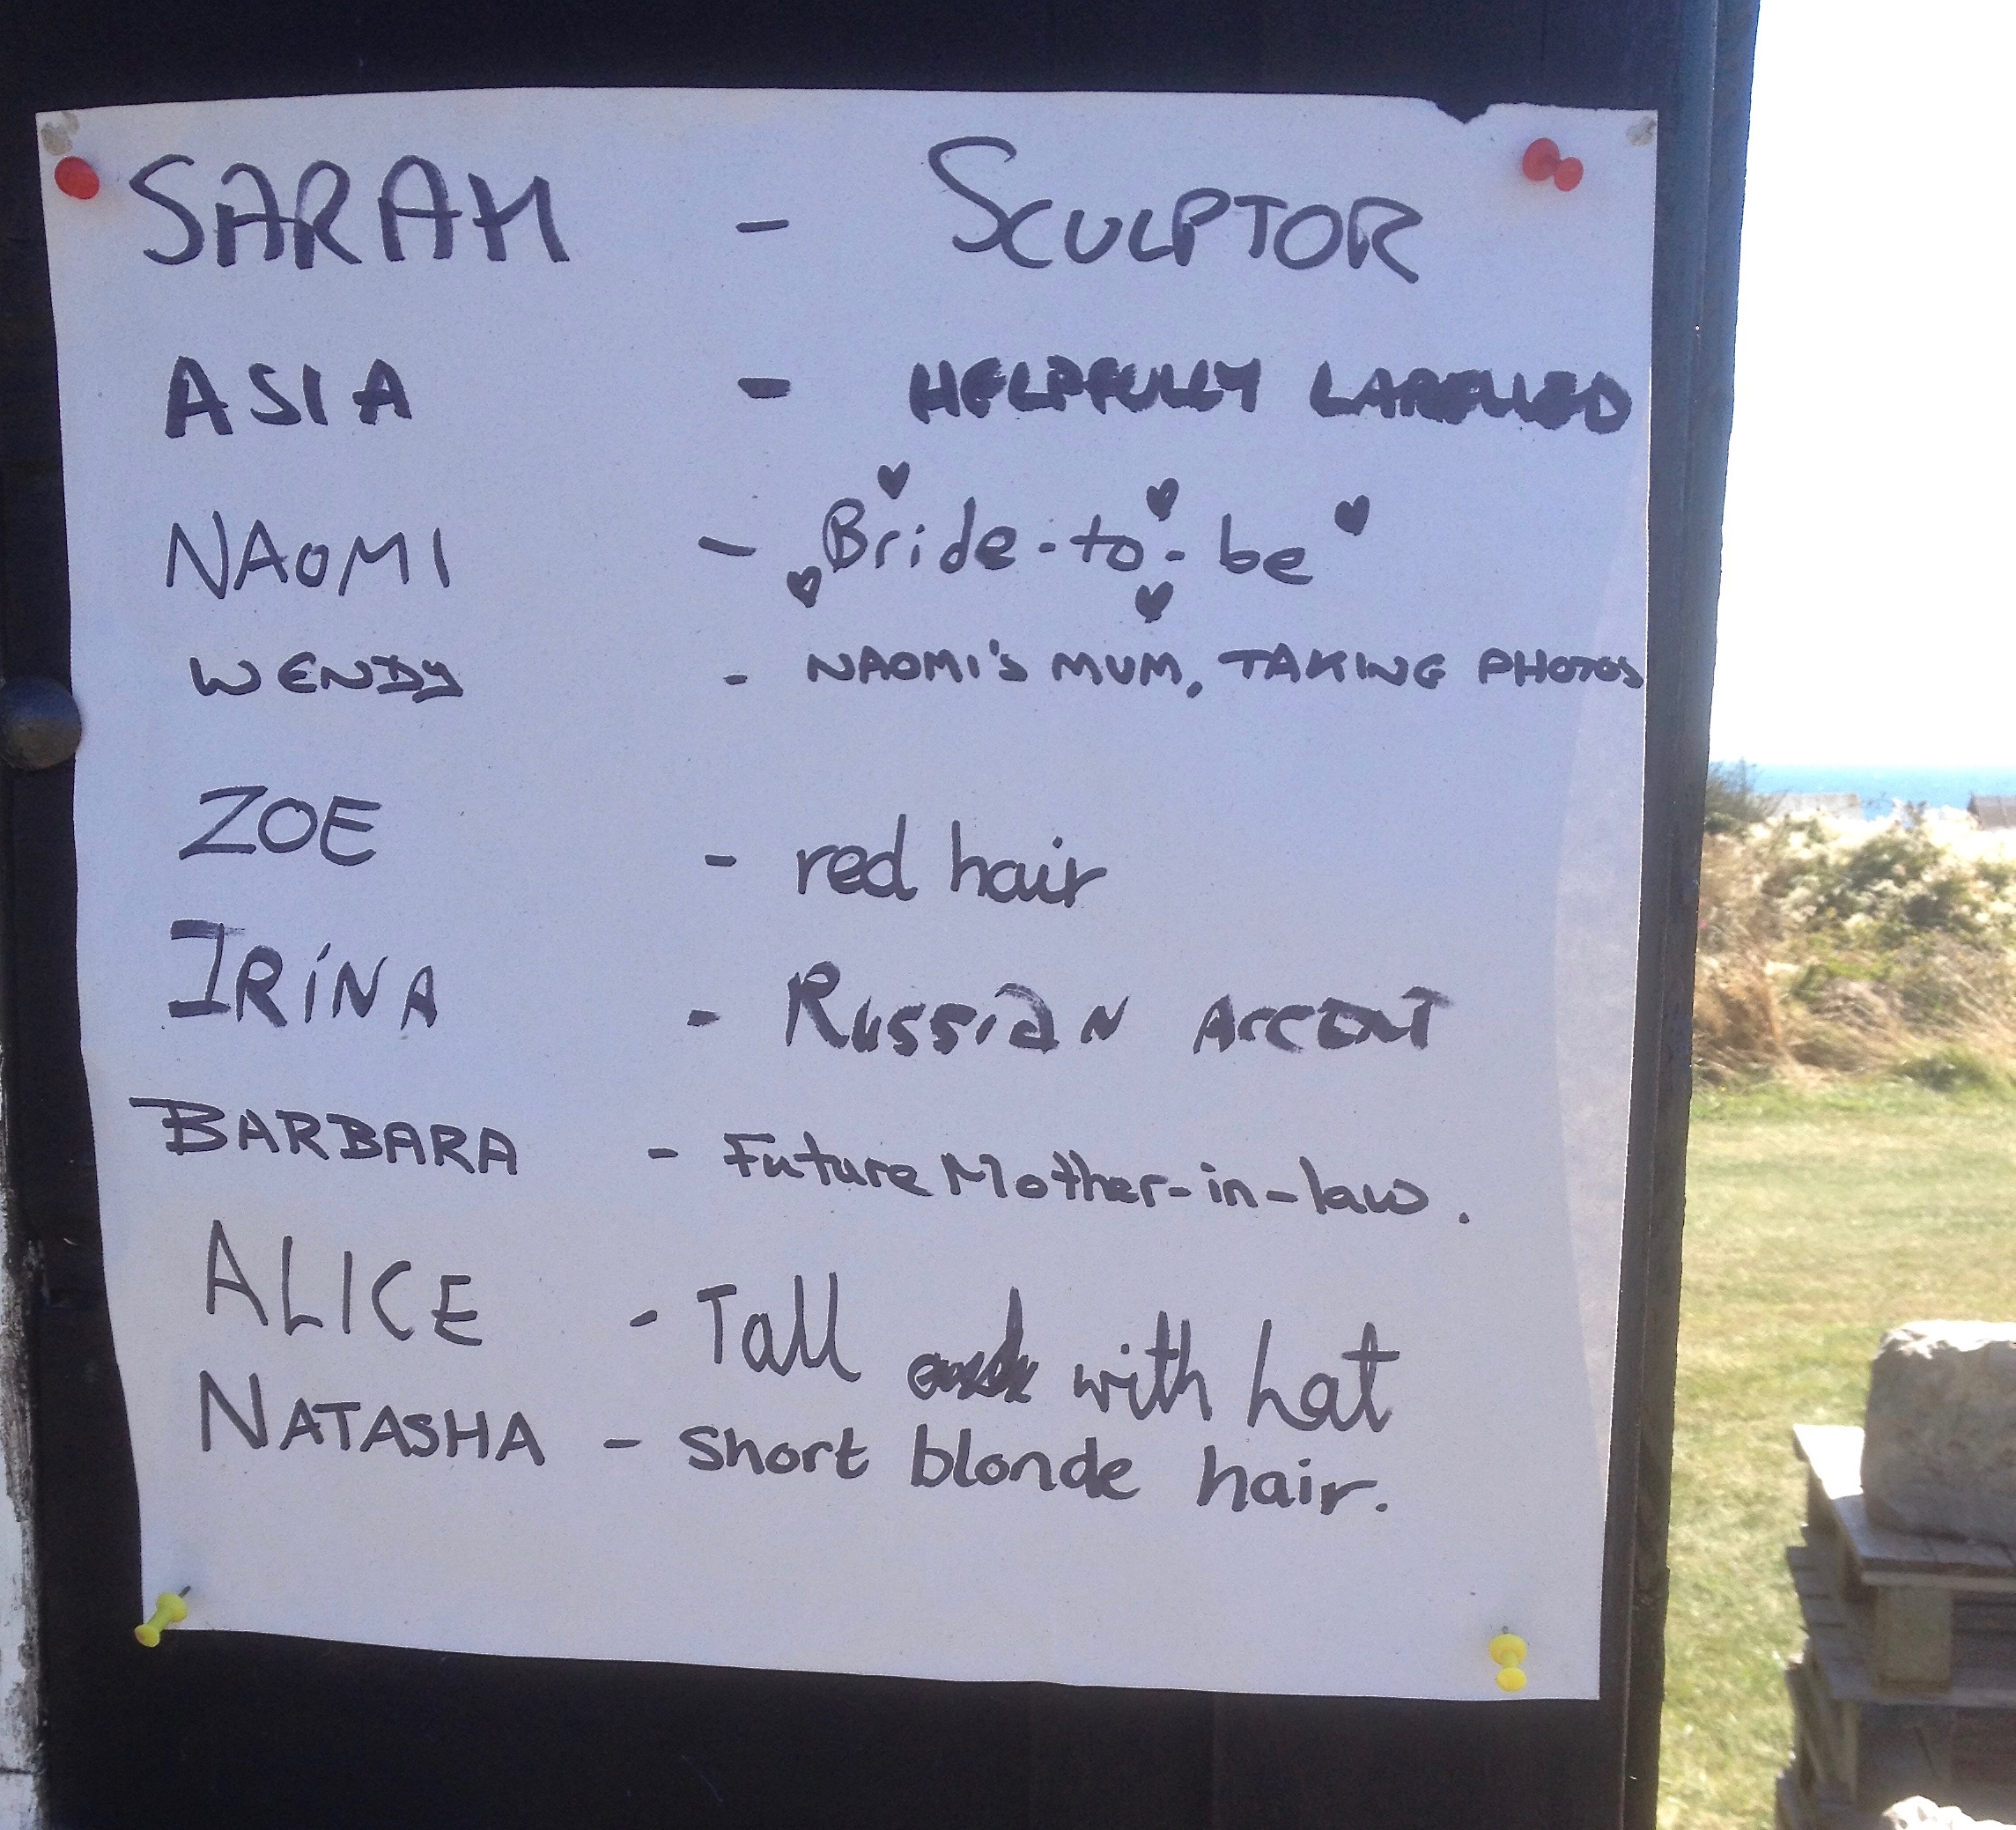 SARAH - SCULPTOR
ASIA - HELPFULLY LABELLED
NAOMI - Bride-to-be
WENDY - NAOMI'S MUM, TAKING PHOTOS
ZOE - red hair
IRiNA - Russian Accent
BARBARA - Future Mother-in-law.
ALICE - Tall with hat
NATASHA - Short blonde hair.